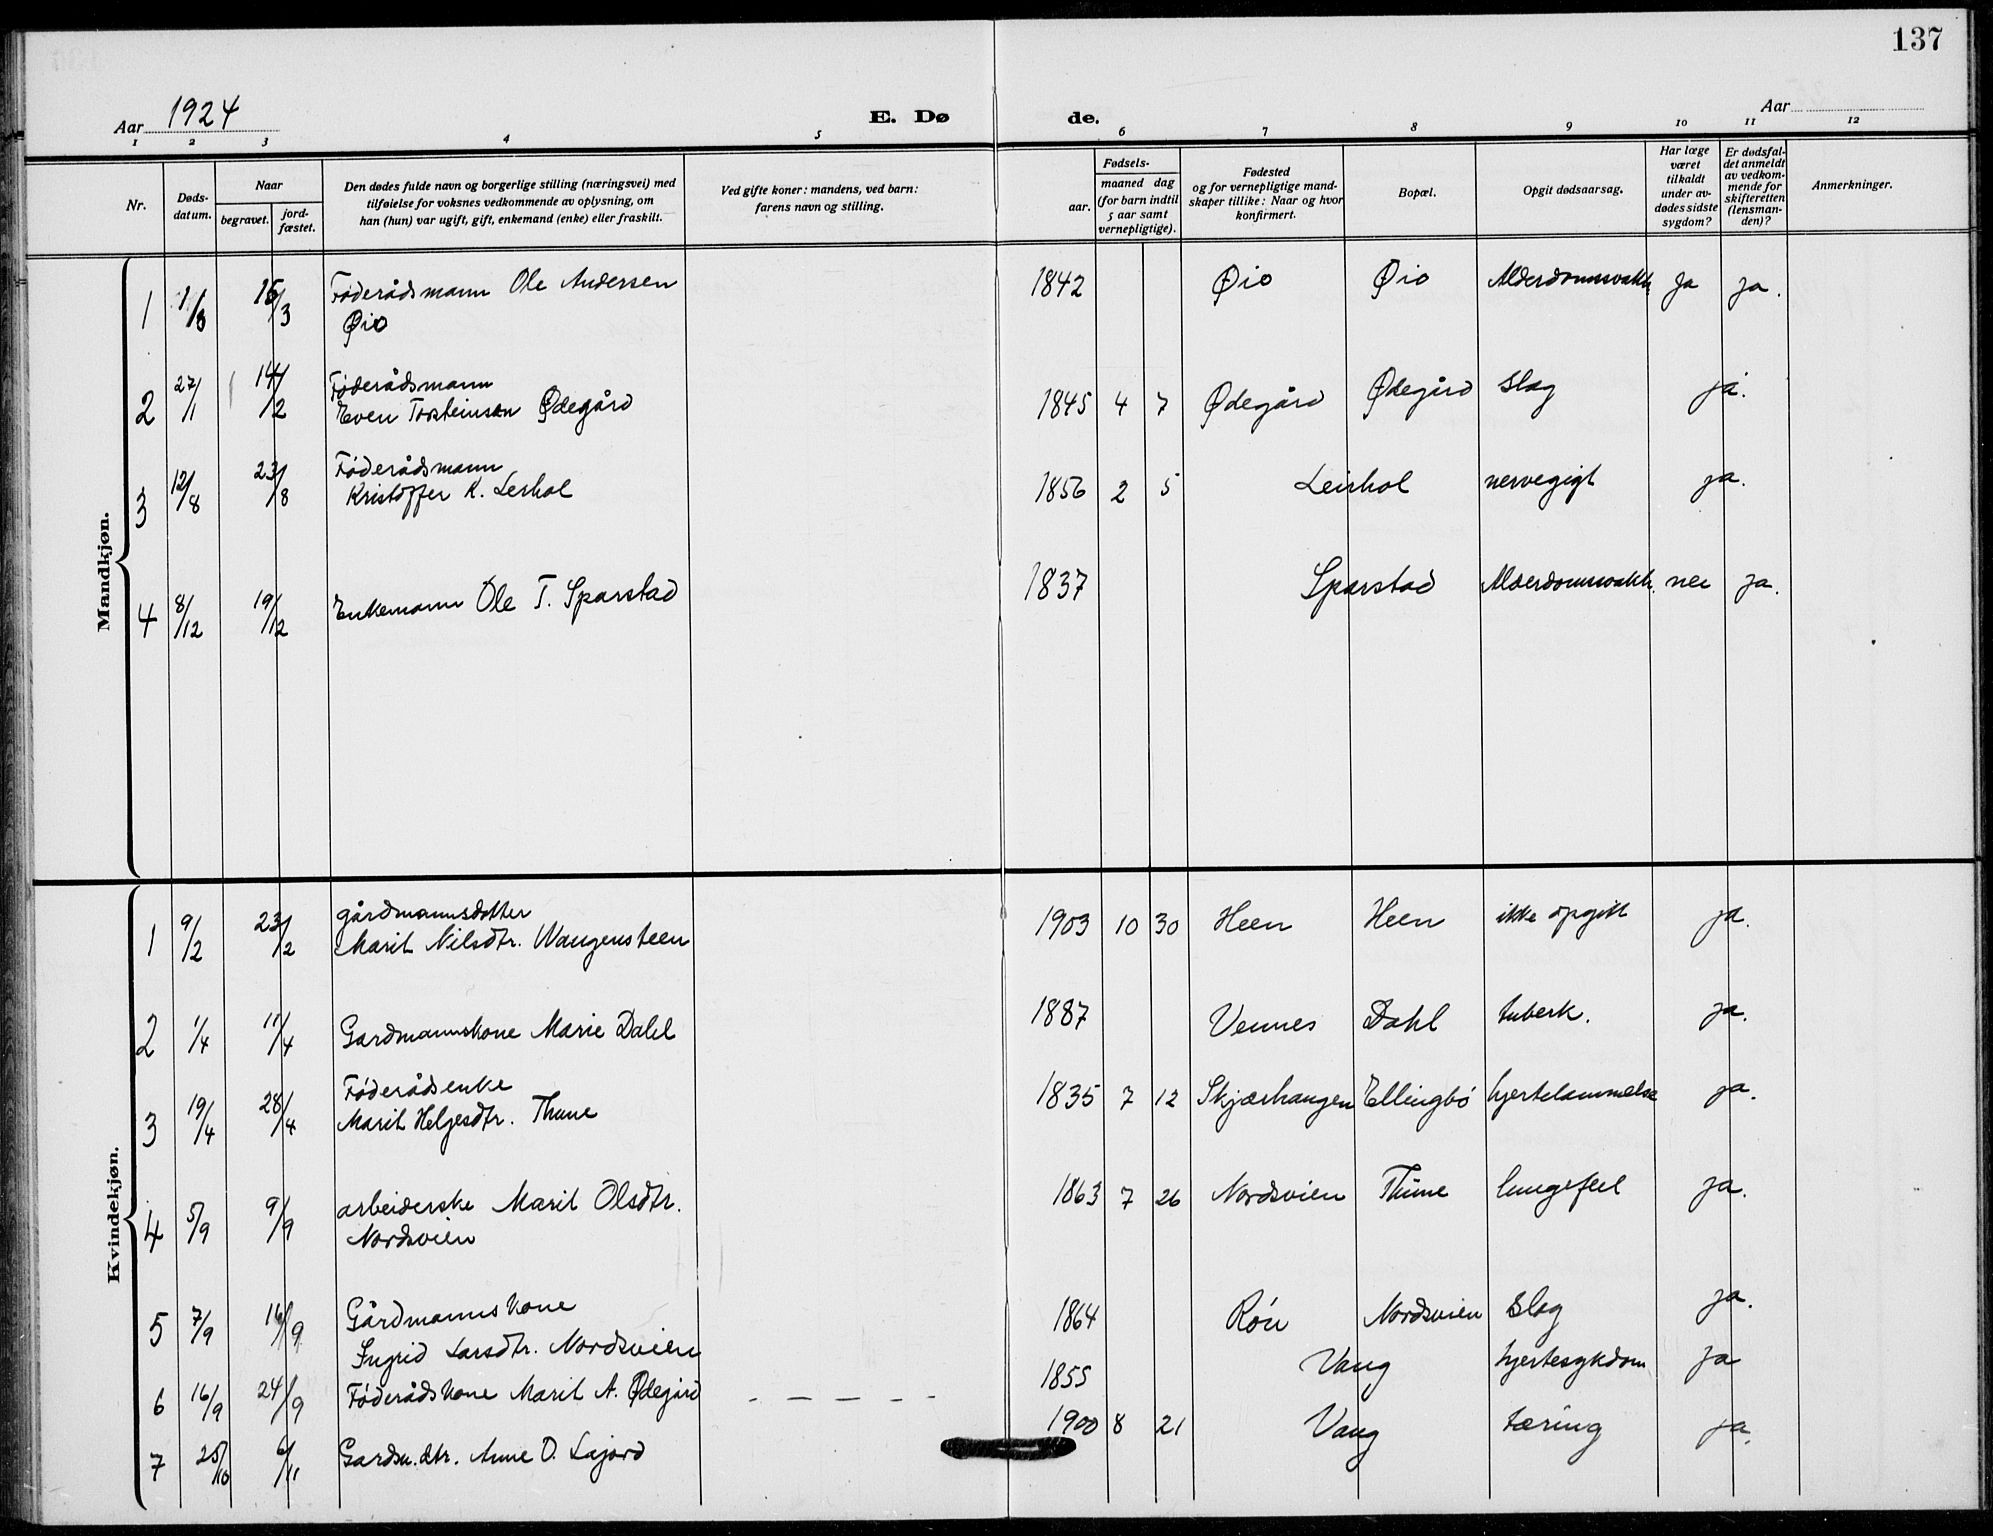 137
Aar 1924
E. Dø de.
Aar
1 2 3 4 5 6 7 8 9 10 11 12
Nr.
Døds-
datum.
Naar
begravet.
jord-
fæstet.
Den dødes fulde navn og borgerlige stilling (næringsvei) med
tilføielse for voksnes vedkommende av oplysning, om
han (hun) var ugift, gift, enkemand (enke) eller fraskilt.
Ved gifte koner: mandens, ved barn:
farens navn og stilling.
Fødsels-
aar.
maaned dag
(for barn indtil
5 aar samt
vernepligtige).
Fødested
og for vernepligtige mand-
skaper tillike: Naar og hvor
konfirmert.
Bopæl.
Opgit dødsaarsag.
Har læge
været
tilkaldt
under av-
dødes sidste
sygdom?
Er dødsfal-
det anmeldt
av vedkom-
mende for
skifteretten
(lensman-
den)?
Anmerkninger.
Mandkjøn.
1 1/3 15/3 Føderådsmann Ole Andersen 1842 Øio Øio Alderdomssvakh. ja ja.
Øio
2 27/1 14/2 Føderådsmann
Even Torsteinsen Ødegård 1845 4 7 Ødegård Ødegård slag ja.
3 12/8 23/8 Føderådsmann
Kristoffer K. Lerhol 1856 2 5 Leirhol nervegigt ja.
4 8/12 19/12 Enkemann Ole T. Sparstad 1837 Sparstad Alderdomssvakh. nei ja.
Kvindekjøn.
1 9/2 23/2 gårdmannsdotter
Marit Nilsdtr. Wangensteen 1903 10 30 Heen Heen ikke opgitt ja.
2 1/4 11/4 Gardmannskone Marie Dahl 1887 Vennes Dahl tuberk. ja.
3 19/4 28/4 Føderådsenke
Marit Helgesdtr. Thune 1835 7 12 Skjærhaugen Ellingbø hjertelammelse ja.
4 5/9 9/9 arbeiderske Marit Olsdtr. 1863 7 26 Nordsvien Thune lungefeil ja.
Nordsvien
5 7/9 16/9 Gårdmannskone
Ingrid Larsdtr. Nordsvien 1864 Røn Nordsvien slag ja.
6 16/9 24/9 Føderådskone Marit A. Ødegård – – – – – 1855 Vang hjertesykdom ja
7 25/10 6/11 Gardm.dtr. Anne O. Lajord 1900 8 21 Vang tæring ja.